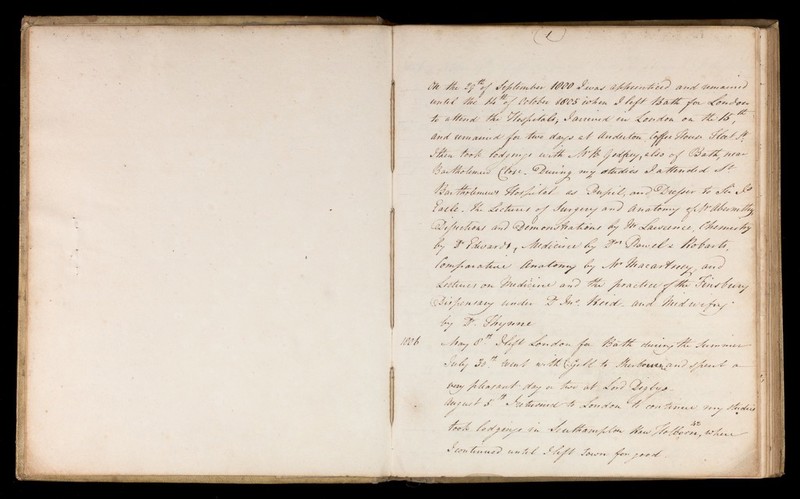 (1)
On the 29th of September 1800 I was apprenticed and remained
until the 14th of October 1805 when I left Bath for London
to attend the Hospitals, I arrived in London on the 15th
and remained for two days at Anderton Coffee House Fleet St.
I then took lodgings with Mr. B. Godfrey, also of Bath, near
Bartholemews Close. During my studies I attended St.
Bartholemews Hospital as Pupil, and Dresser to Sir Js.
Earle. The Lectures of Surgery and Anatomy of Mr Abernethy
Disections and Demonstrations by Mr Lawrence, Chemistry
by Dr Edwards, Medicine by Drs Powel & Robarts,
Comparative Anatomy by Mr Macartney, and
Lectures on Medicine and the practice of the Finsbury
Dispensary under Dr Jno. Reid. and Midwifry
by Dr. Thynne
1806 May 8th I left London for Bath during the Summer
July 30th went with to Sherborne and spent a
very pleasant day or two at Lord Digbys
August 5th I returned to London to continue my studies
took lodgings in Southampton Row, Holborn, where
I continued until I left Town for good